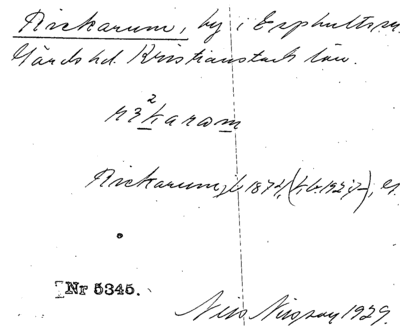 Rickarum, by i Esphults sn.
Gärds hd. Kristianstads län.
Rickarum, 1872,
Nr 5345.
Nils Nilsson 1929.